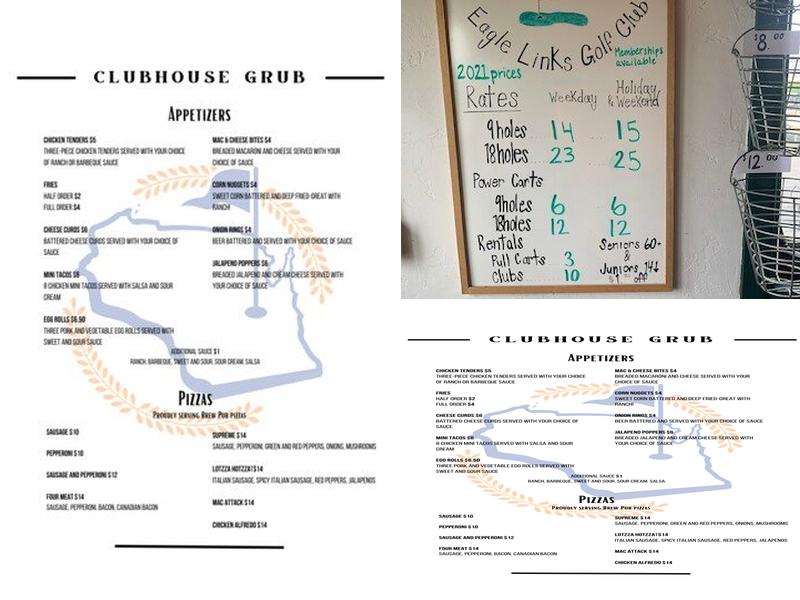 CLUBHOUSE GRUB
APPETIZERS
CHICKEN TENDERS $5
THREE-PIECE CHICKEN TENDERS SERVED WITH YOUR CHOICE
OF RANCH OR BARBEQUE SAUCE
FRIES
HALF ORDER $2
FULL ORDER $4
CHEESE CURDS $6
BATTERED CHEESE CURDS SERVED WITH YOUR CHOICE OF
SAUCE
MINI TACOS $6
8 CHICKEN MINI TACOS SERVED WITH SALSA AND SOUR
CREAM
EGG ROLLS $6.50
THREE PORK AND VEGETABLE EGG ROLLS SERVED WITH
SWEET AND SOUR SAUCE
MAC & CHEESE BITES $4
BREADED MACARONI AND CHEESE SERVED WITH YOUR
CHOICE OF SAUCE
CORN NUGGETS $4
SWEET CORN BATTERED AND DEEP FRIED-GREAT WITH
RANCH!
ONION RINGS $4
BEER BATTERED AND SERVED WITH YOUR CHOICE OF SAUCE
JALAPENO POPPERS $6
BREADED JALAPENO AND CREAM CHEESE SERVED WITH
YOUR CHOICE OF SAUCE
ADDITIONAL SAUCE $1
RANCH, BARBEQUE, SWEET AND SOUR, SOUR CREAM, SALSA
PIZZAS
PROUDLY SERVING BREW PUB PIZZAS
SAUSAGE $10
PEPPERONI $10
SAUSAGE AND PEPPERONI $12
FOUR MEAT $14
SAUSAGE, PEPPERONI, BACON, CANADIAN BACON
SUPREME $14
SAUSAGE, PEPPERONI, GREEN AND RED PEPPERS, ONIONS, MUSHROOMS
LOTZZA HOTZZA!$14
ITALIAN SAUSAGE, SPICY ITALIAN SAUSAGE, RED PEPPERS, JALAPENOS
MAC ATTACK $14
CHICKEN ALFREDO $14
Eagle Links Golf Club
Memberships
available
2021 prices
Rates Weekday Holiday
& Weekend
9holes 14 15
18holes 23 25
Power Carts
9holes 6 6
18holes 12 12
Rentals Seniors 60+
Pull Carts 3 &
Clubs 10 Juniors 14↓
$1 off
$8.00
$12.00
CLUBHOUSE GRUB
APPETIZERS
CHICKEN TENDERS $5
THREE-PIECE CHICKEN TENDERS SERVED WITH YOUR CHOICE
OF RANCH OR BARBEQUE SAUCE
FRIES
HALF ORDER $2
FULL ORDER $4
CHEESE CURDS $6
BATTERED CHEESE CURDS SERVED WITH YOUR CHOICE OF
SAUCE
MINI TACOS $6
8 CHICKEN MINI TACOS SERVED WITH SALSA AND SOUR
CREAM
EGG ROLLS $6.50
THREE PORK AND VEGETABLE EGG ROLLS SERVED WITH
SWEET AND SOUR SAUCE
MAC & CHEESE BITES $4
BREADED MACARONI AND CHEESE SERVED WITH YOUR
CHOICE OF SAUCE
CORN NUGGETS $4
SWEET CORN BATTERED AND DEEP FRIED-GREAT WITH
RANCH!
ONION RINGS $4
BEER BATTERED AND SERVED WITH YOUR CHOICE OF SAUCE
JALAPENO POPPERS $6
BREADED JALAPENO AND CREAM CHEESE SERVED WITH
YOUR CHOICE OF SAUCE
ADDITIONAL SAUCE $1
RANCH, BARBEQUE, SWEET AND SOUR, SOUR CREAM, SALSA
PIZZAS
PROUDLY SERVING BREW PUB PIZZAS
SAUSAGE $10
PEPPERONI $10
SAUSAGE AND PEPPERONI $12
FOUR MEAT $14
SAUSAGE, PEPPERONI, BACON, CANADIAN BACON
SUPREME $14
SAUSAGE, PEPPERONI, GREEN AND RED PEPPERS, ONIONS, MUSHROOMS
LOTZZA HOTZZA!$14
ITALIAN SAUSAGE, SPICY ITALIAN SAUSAGE, RED PEPPERS, JALAPENOS
MAC ATTACK $14
CHICKEN ALFREDO $14